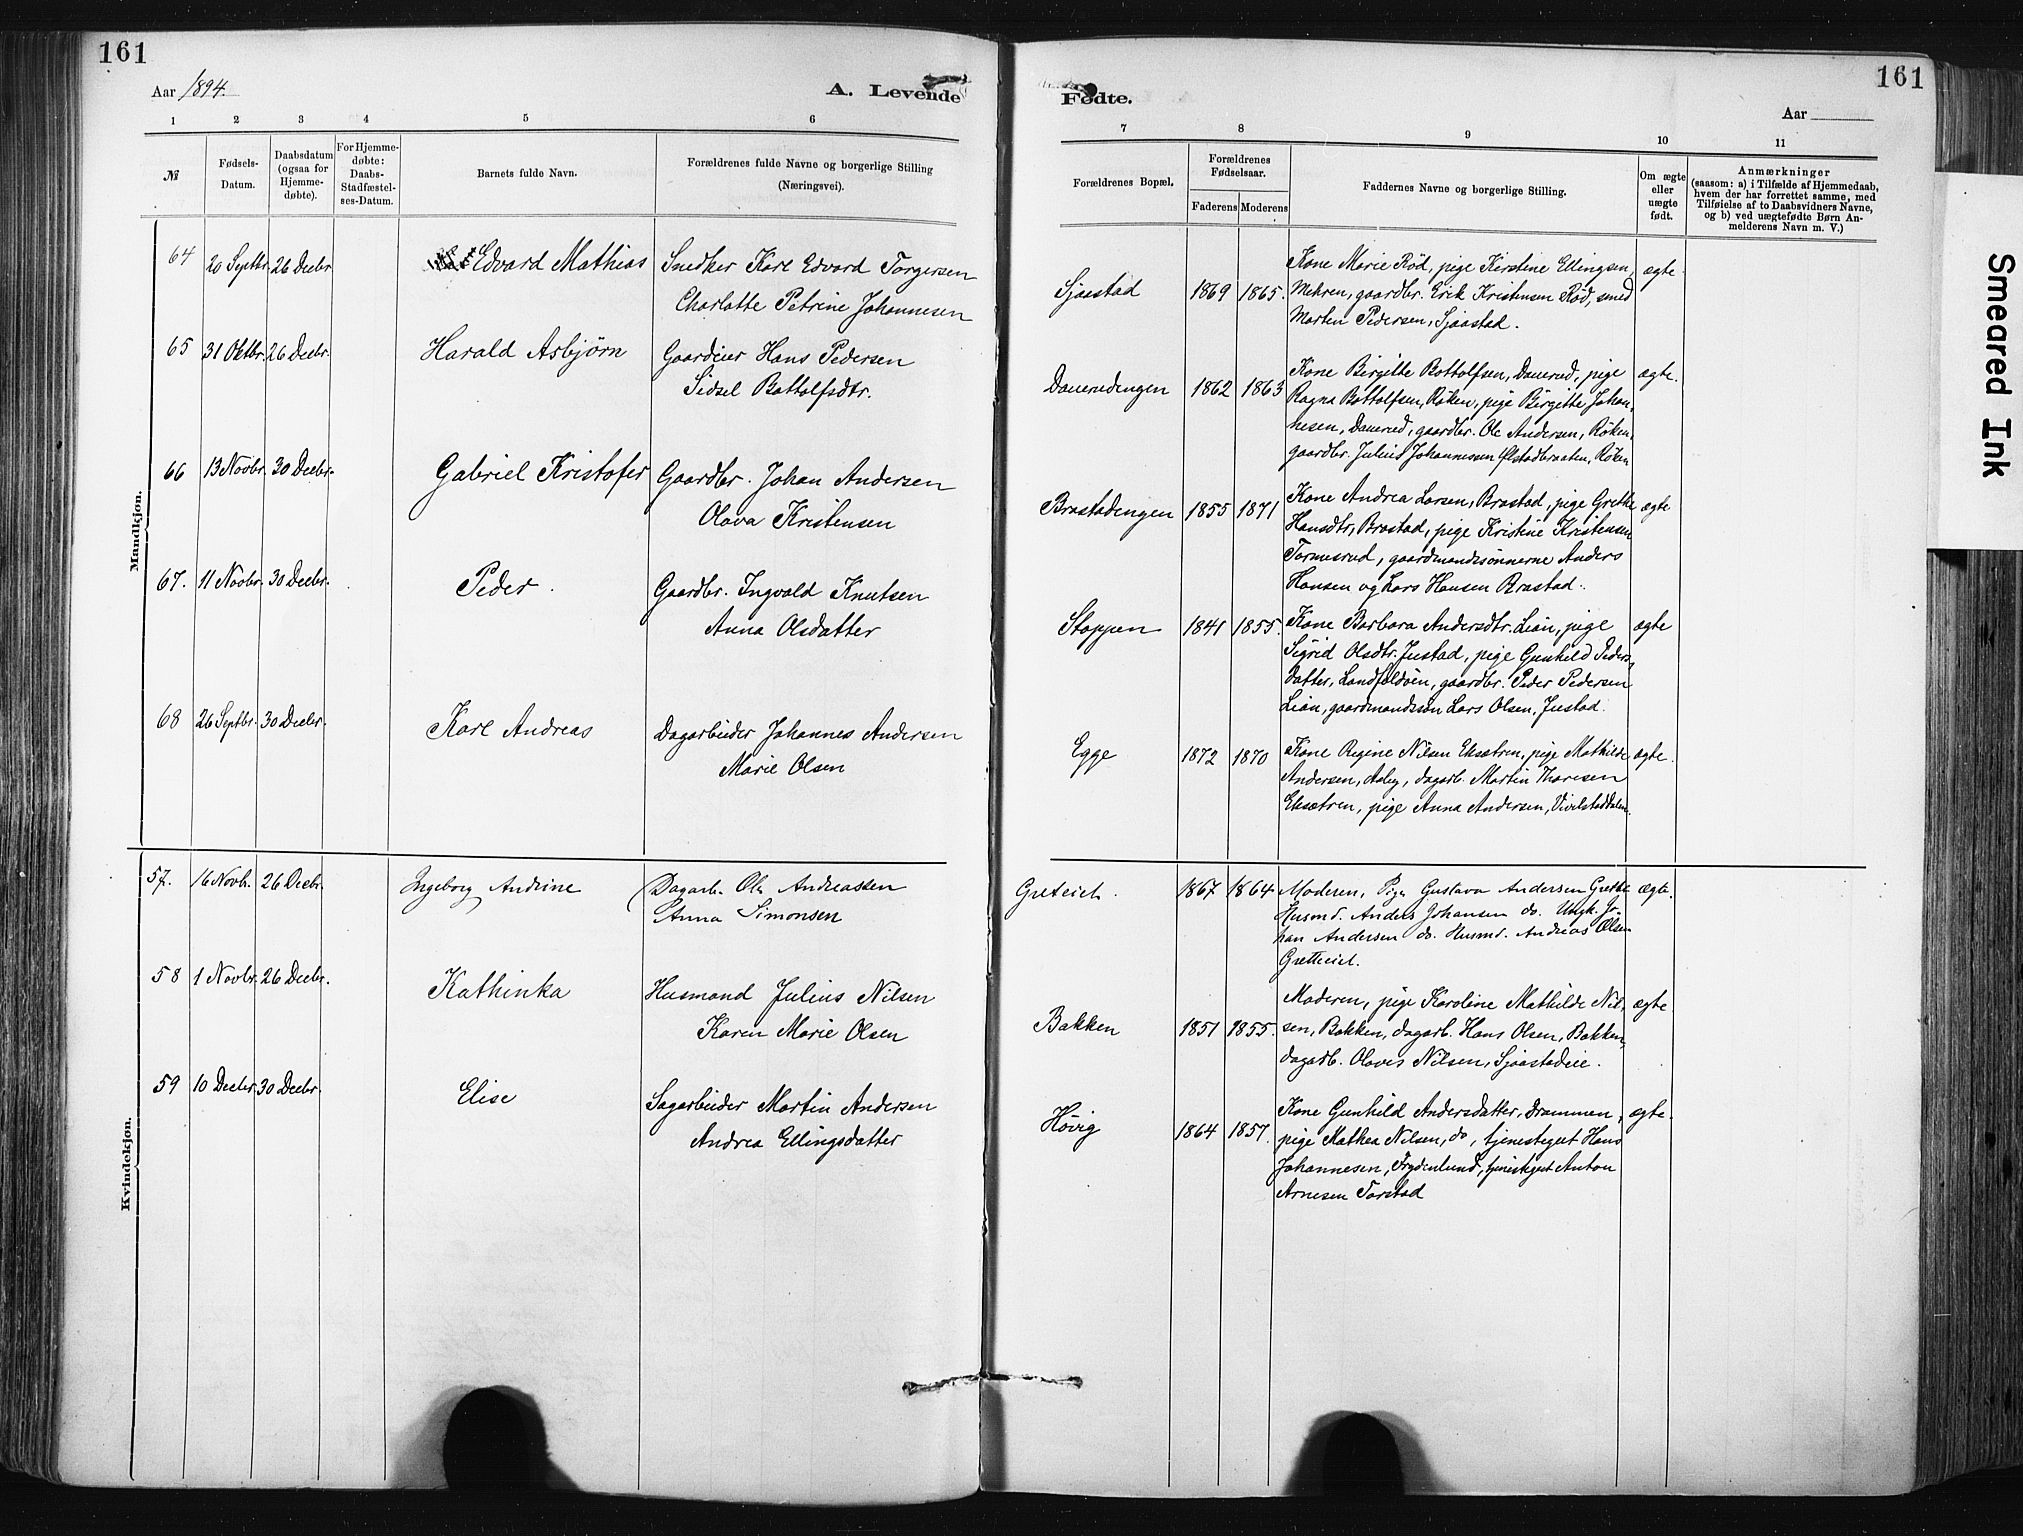 161
Aar 1894.
A. Levende
1 2 3 4 5 6
№
Fødsels-
Datum.
Daabsdatum
(ogsaa for
Hjemme-
døbte).
For Hjemme-
døbte:
Daabs-
Stadfæstel-
ses-Datum.
Barnets fulde Navn.
Forældrenes fulde Navne og borgerlige Stilling
(Næringsvei).
Mandkjøn.
64 20 Septbr. 26 Decbr. Edvard Mathias Snedker Karl Edvard Torgersen
Charlotte Petrine Johannesen
65 31 Oktbr. 26 Decbr. Harald Asbjørn Gaardeier Hans Pedersen
Sidsel Bottolfsdtr.
66 13 Novbr. 30 Decbr. Gabriel Kristofer Gaardbr. Johan Andersen
Olava Kristensen
67. 11 Novbr. 30 Decbr. Peder. Gaardbr. Ingvald Knutsen
Anna Olsdatter
68 26 Septbr. 30 Decbr. Karl Andreas Dagarbeider Johannes Andersen
Marie Olsen
Kvindekjøn.
57. 16 Novb. 26 Decbr. Ingeborg Andrine Dagarb. Ole Andreassen
Anna Simonsen
58 1 Novbr. 26 Decbr. Kathinka Husmand Julius Nilsen
Karen Marie Olsen
59 10 Decbr. 30 Decbr. Elise Sagarbeider Martin Andersen
Andrea Ellingsdatter
161
Fødte.
Aar
7 8 9 10 11
Forældrenes Bopæl.
Forældrenes
Fødselsaar.
Faderens Moderens
Faddernes Navne og borgerlige Stilling.
Om ægte
eller
uægte
født.
Anmærkninger
(saasom: a) i Tilfælde af Hjemmedaab,
hvem der har forrettet samme, med
Tilføielse af to Daabsvidners Navne,
og b) ved uægtefødte Børn An-
melderens Navn m. V.)
Kone Marie Rød, pige Kirstine Ellingsen, ægte.
Sjaastad 1869 1865. Mehren, gaardbr. Erik Kristensen Rød, smed
Marten Pedersen, Sjaastad.
Kone Birgitte Bottolfsen, Dauerud, pige ægte.
Dauerudengen 1862 1863 Ragna Bottolfsen, Røken, pige Birgitte Johan-
nesen, Dauerud, gaardbr. Ole Andersen, Røken,
gaardbr. Julius Johannessen Ølstadbraaten, Røken
Kone Andrea Larsen, Brastad, pige Grethe ægte
Brastadengen 1855 1871 Hansdtr, Brastad, pige Kristine Kristensen
Tormesrud, gaardmandssønnerne Anders
Hansen og Lars Hansen Brastad.
Stoppen 1841 1855. Kone Barbara Andersdtr. Lian, pige ægte
Sigrid Olsdtr. Justad, pige Gunhild Peders-
datter, Landfaldøen, gaardbr. Peder Pedersen
Lian, gaardmandssøn Lars Olsen, Justad.
Egge 1872 1870 Kone Regine Nilsen Eksætren, pige Mathilde ægte.
Andersen, Aaby, dagarb. Martin Thoresen
Eksætren, pige Anna Andersen, Vivelstaddalen.
Greteeiet. 1867 1864 Moderen, Pige Gustava Andersen Grette ægte.
Husmd. Anders Johansen do. Ungk. Jo-
han Andersen do. Husmd. Andreas Olsen
Gretteeiet.
Moderen, pige Karoline Mathilde Nil- ægte
Bakken 1851 1855. sen, Bakken, dagarb. Hans Olsen, Bakken,
dagarb. Olaves Nilsen, Sjaastadeie.
Kone Gunhild Andersdatter, Drammen, ægte.
Høvig 1864 1857. pige Mathea Nilsen, do, tjenestegut Hans
Johannesen, Frydenlund, tjenestegut Anton
Arnesen Torstad
Smeared Ink